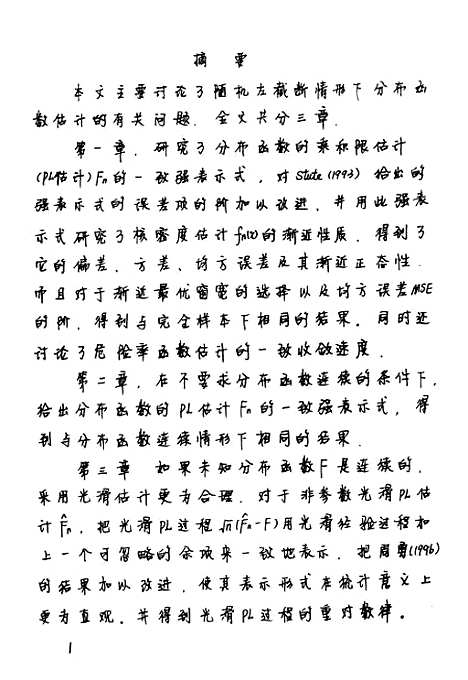 摘 要
本文主要讨论了随机左截断情形下分布函
数估计的有关问题. 全文共分三章.
第一章. 研究了分布函数的乘积限估计
(PL估计)Fn的一致强表示式, 对Stute(1993)给出的
强表示式的误差项的阶加以改进. 并用此强表
示式研究了核密度估计fn(x)的渐近性质. 得到了
它的偏差、方差、均方误差及其渐近正态性.
而且对于渐近最优窗宽的选择以及均方误差MSE
的阶. 得到与完全样本下相同的结果。同时还
讨论了危险率函数估计的一致收敛速度.
第二章. 在不要求分布函数连续的条件下,
给出分布函数的PL估计Fn的一致强表示式, 得
到与分布函数连续情形下相同的结果.
第三章 如果未知分布函数F是连续的.
采用光滑估计更为合理. 对于非参数光滑PL估
计F̂n, 把光滑PL过程√n(F̂n-F)用光滑经验过程和
上一个可忽略的余项来一致地表示. 把周勇(1996)
的结果加以改进. 使其表示形式在统计意义上
更为直观。并得到光滑PL过程的重对数律。
1